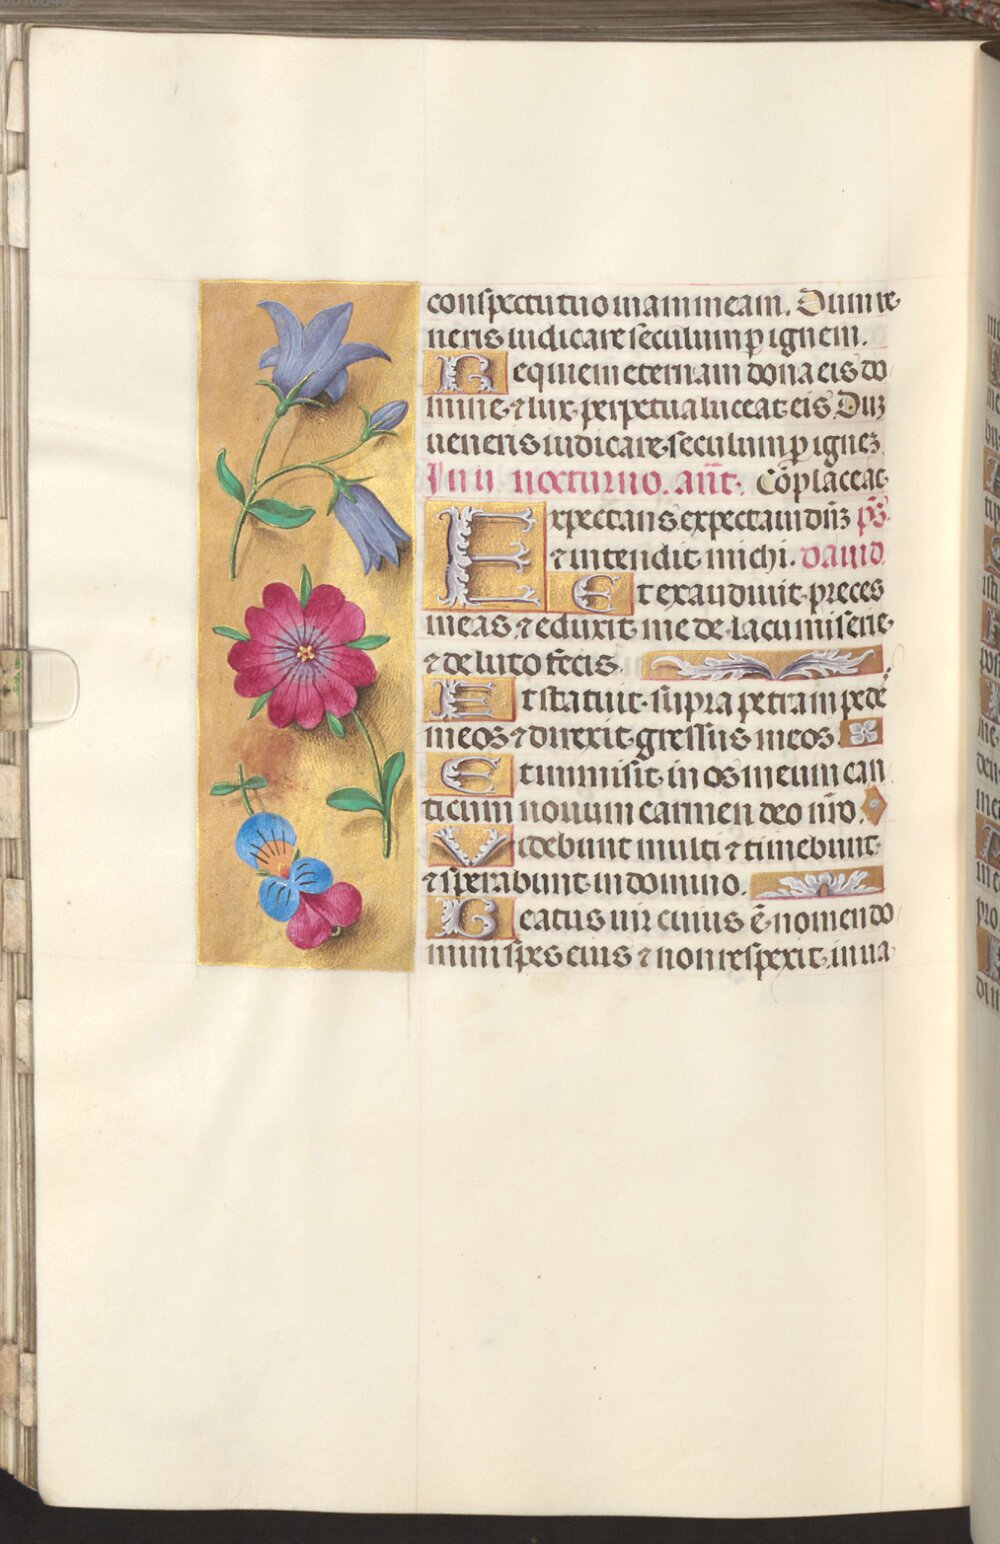 conspectu tuo uiam meam. Dum ve
neris iudicare seculum p ignem.
Requiem eternam dona eis do
mine ⁊ lux perpetua luceat eis Duz
ueneris iudicare seculum p ignez
In ii nocturno. añt. Cōplaceat
Expectans expectaui dñz ps̄
⁊ intendit michi. dauid
Et exaudiuit preces
meas ⁊ eduxit me de lacu miserie
⁊ de luto fecis
Et statuit supra petram pede
meos ⁊ direxit gressus meos
Et immisit in os meum can
ticum nouum carmen deo nr̄o.
Videbunt multi ⁊ timebunt
⁊ sperabunt in domino.
Beatus uir cuius ē nomen do
mini spes eius ⁊ non respexit in ua